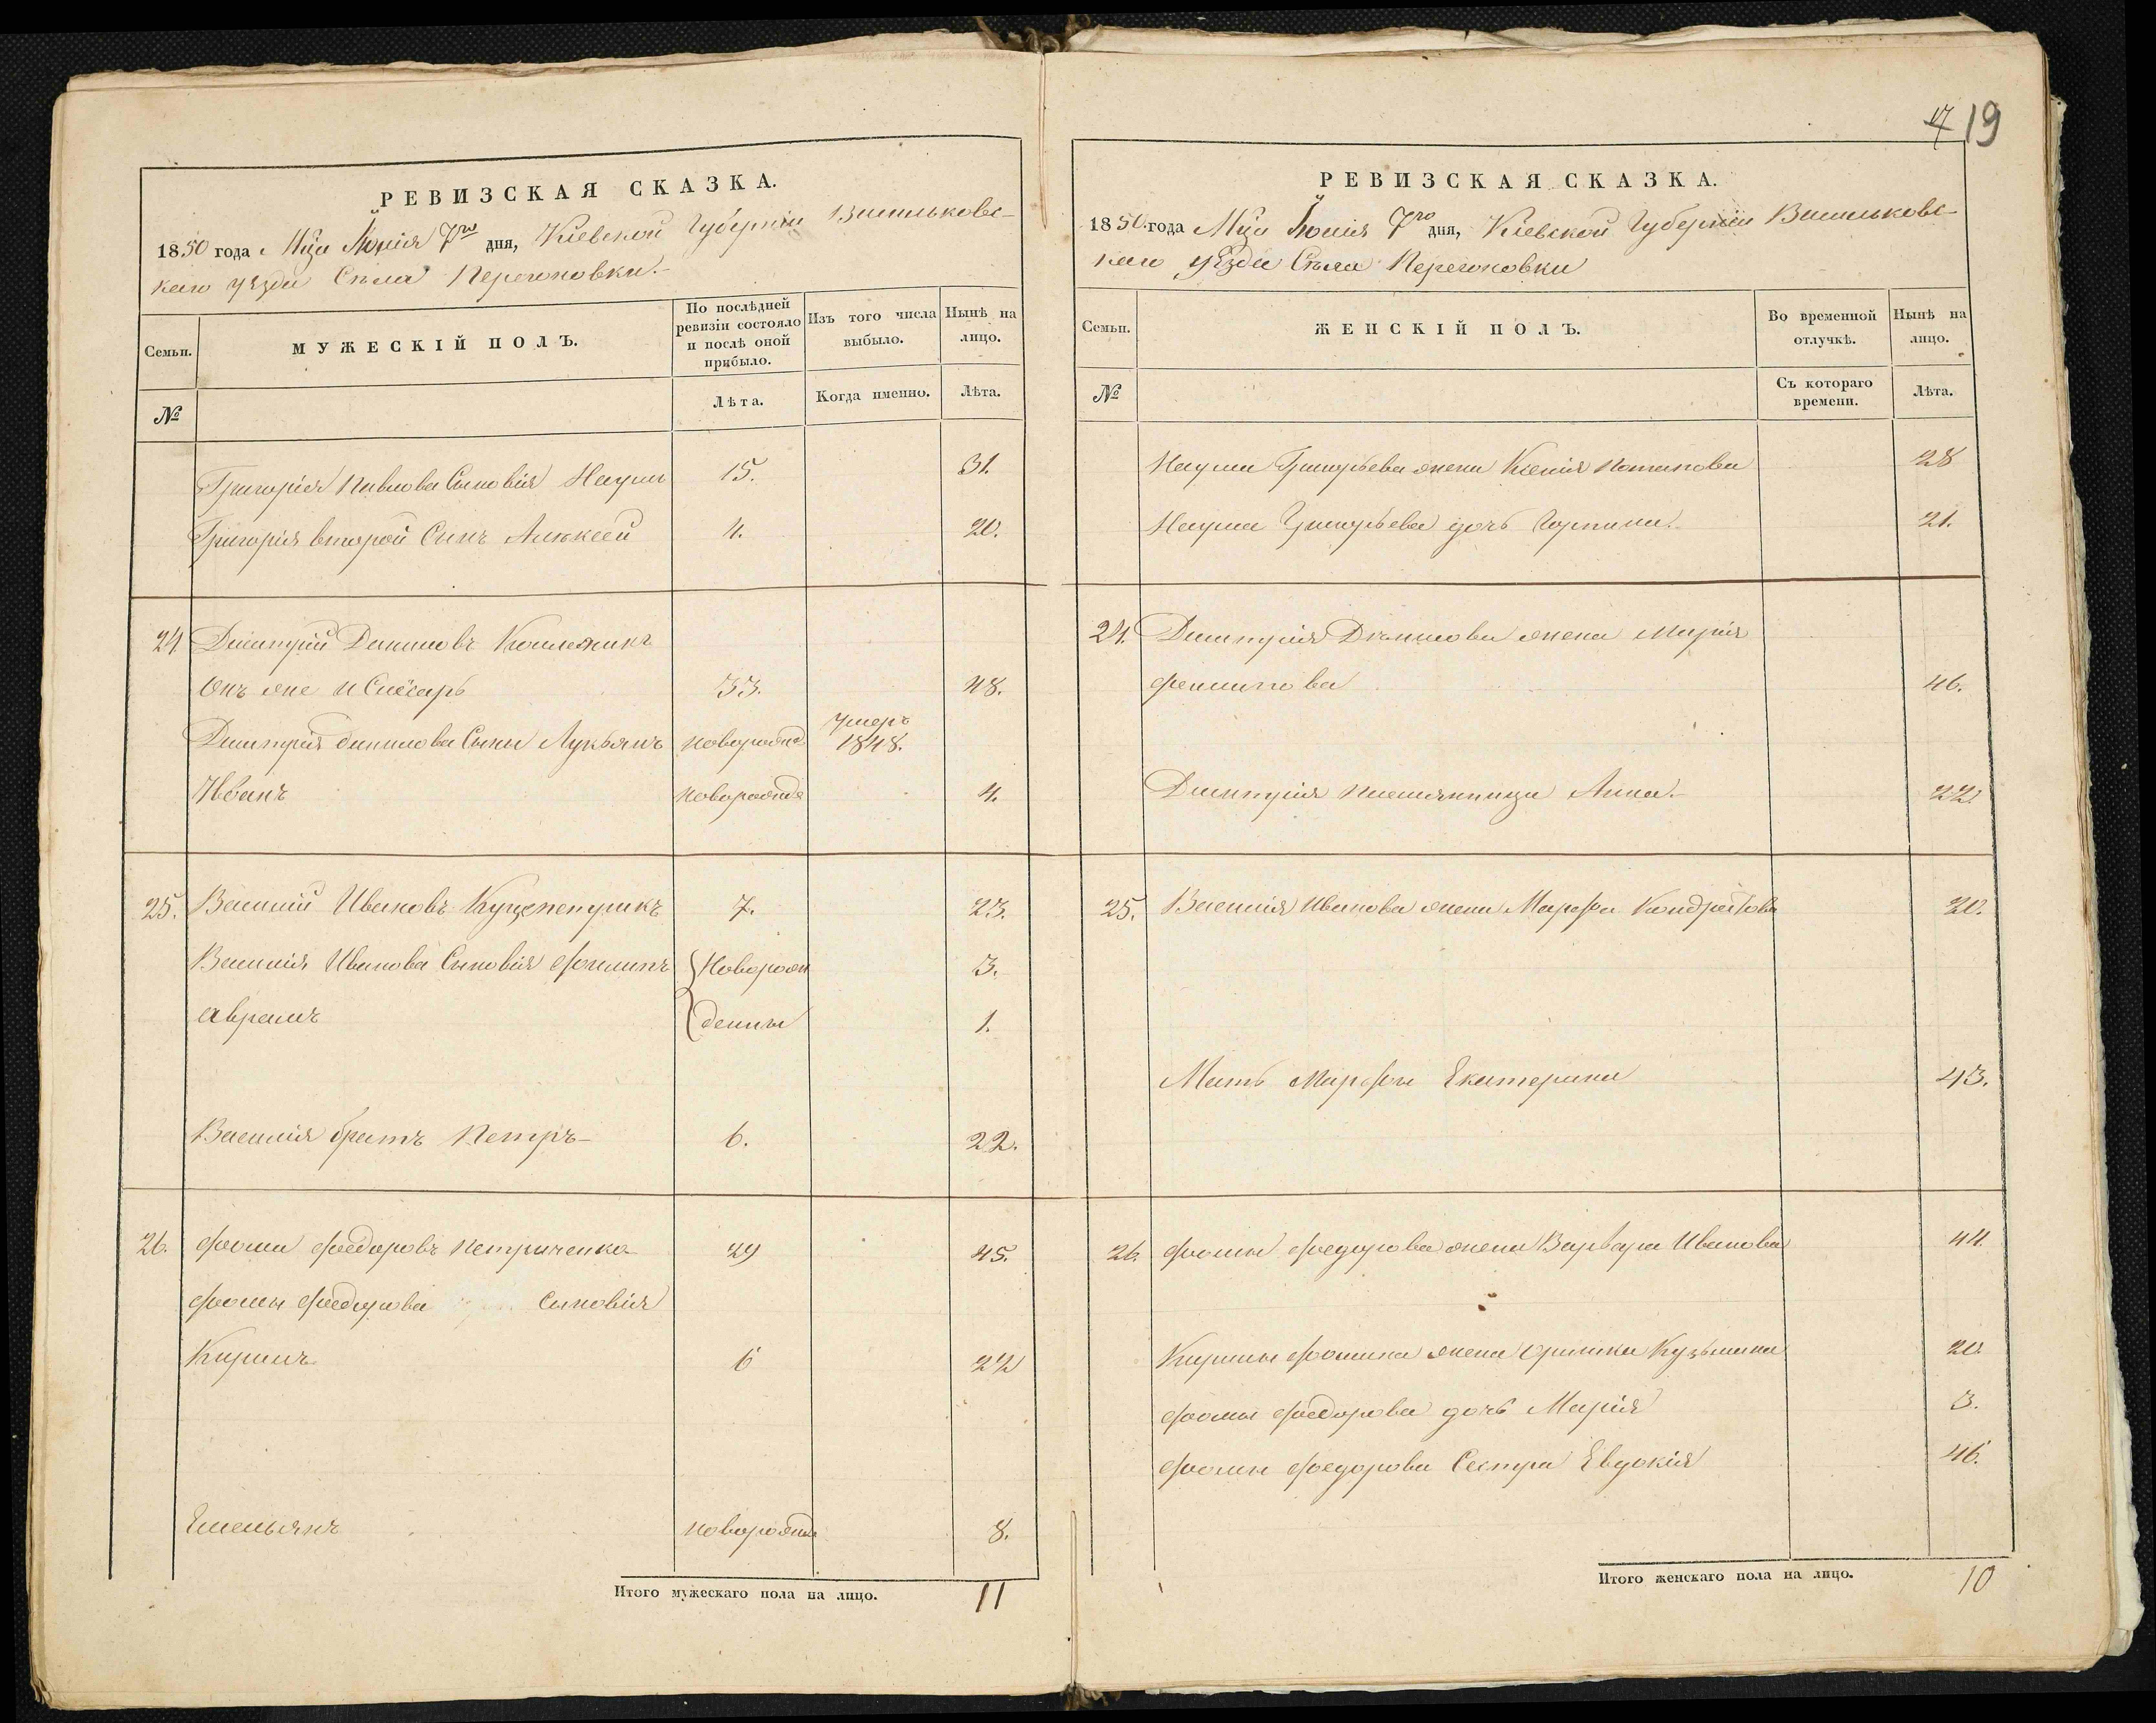 РЕВИЗСКАЯ СКАЗКА.
1850 года Мца Іюнія 7го дня, Кіевской Губерніи Васильковс-
каго уѣзда Села Перегоновки.-
Семьи.
МУЖЕСКІЙ ПОЛЪ.
По послѣдней ревизіи состояло и послѣ оной прибыло.
Изъ того числа выбыло.
Нынѣ на лицо.
№
Лѣта.
Когда именно.
Лѣта.
Григорія Павлова Сыновія Наумъ 15. 31.
Григорія второй Сынъ Алексѣй 4. 20.
24 Дмитрій Даниловъ
Онъ же и Слѣсарь 33. 48.
Дмитрія Данилова Сыны Лукьянъ новорожд умеръ 1848.
Иванъ новорожд 4.
25. Василій Ивановъ Куцепетрикъ 7. 23.
Василія Иванова Сыновія Филипъ Новорож 3.
Аврамъ денны 1.
Василія братъ Петръ- 6. 22.
26. Фома Федоровъ Петриченко 29 45.
Фомы Федорова Сыновія
Кирилъ 6 22
Емельянъ новорожд 8.
Итого мужескаго пола на лицо. 11
17 19
РЕВИЗСКАЯ СКАЗКА.
1850 года Мца Іюнія 7го дня, Кіевской Губерніи Васильковс-
каго уѣзда Села Перегоновки
Семьи.
ЖЕНСКІЙ ПОЛЪ.
Во временной отлучкѣ.
Нынѣ на лицо.
№
Съ котораго времени.
Лѣта.
Наума Григорьева жена Ксенія Потапова 28
Наума Григорьева дочь Горпина. 21.
24. Дмитрія Данилова жена Марія
Филипова 46.
Дмитрія племянница Анна.- 22.
25. Василія Иванова жена Марфа Кондратова 20.
Мать Марфы Екатерина 43.
26. Фомы Федорова жена Варвара Иванова 44.
Кирилы Фомина жена Оришка Кузьмина 20.
Фомы Федорова дочь Марія 3.
Фомы Федорова Сестра Евдокія 46.
Итого женскаго пола на лицо. 10